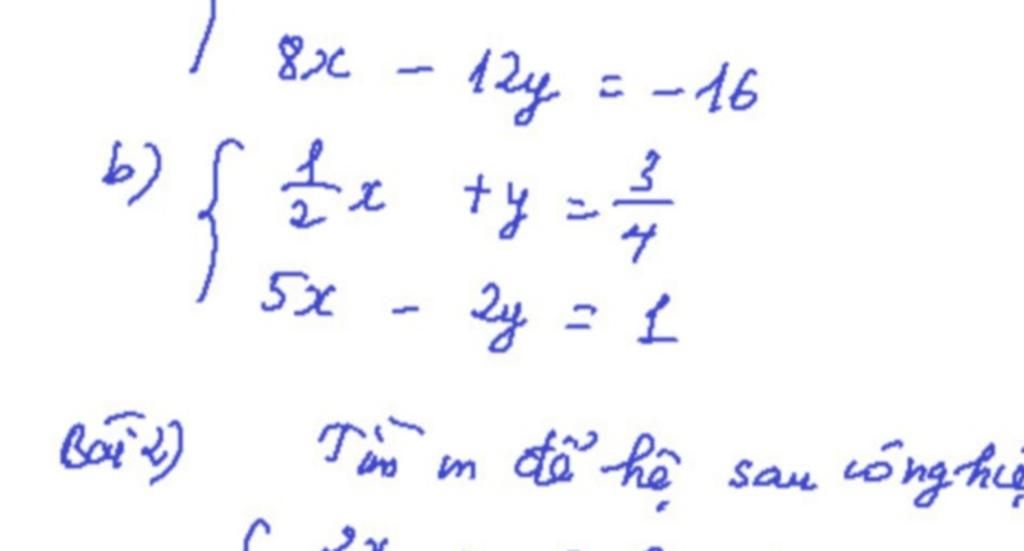 8x - 12y = -16
b) { 1/2 x + y = 3/4
5x - 2y = 1
Bài 2) Tìm m để hệ sau
2x